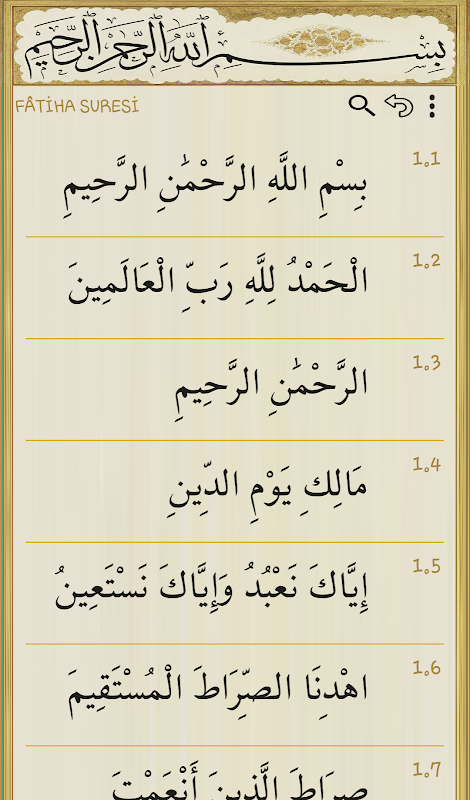 بسم الله الرحمن الرحيم
FÂTİHA SURESİ
1.1
بِسْمِ اللَّهِ الرَّحْمَٰنِ الرَّحِيمِ
1.2
الْحَمْدُ لِلَّهِ رَبِّ الْعَالَمِينَ
1.3
الرَّحْمَٰنِ الرَّحِيمِ
1.4
مَالِكِ يَوْمِ الدِّينِ
1.5
إِيَّاكَ نَعْبُدُ وَإِيَّاكَ نَسْتَعِينُ
1.6
اهْدِنَا الصِّرَاطَ الْمُسْتَقِيمَ
1.7
صِرَاطَ الَّذِينَ أَنْعَمْتَ